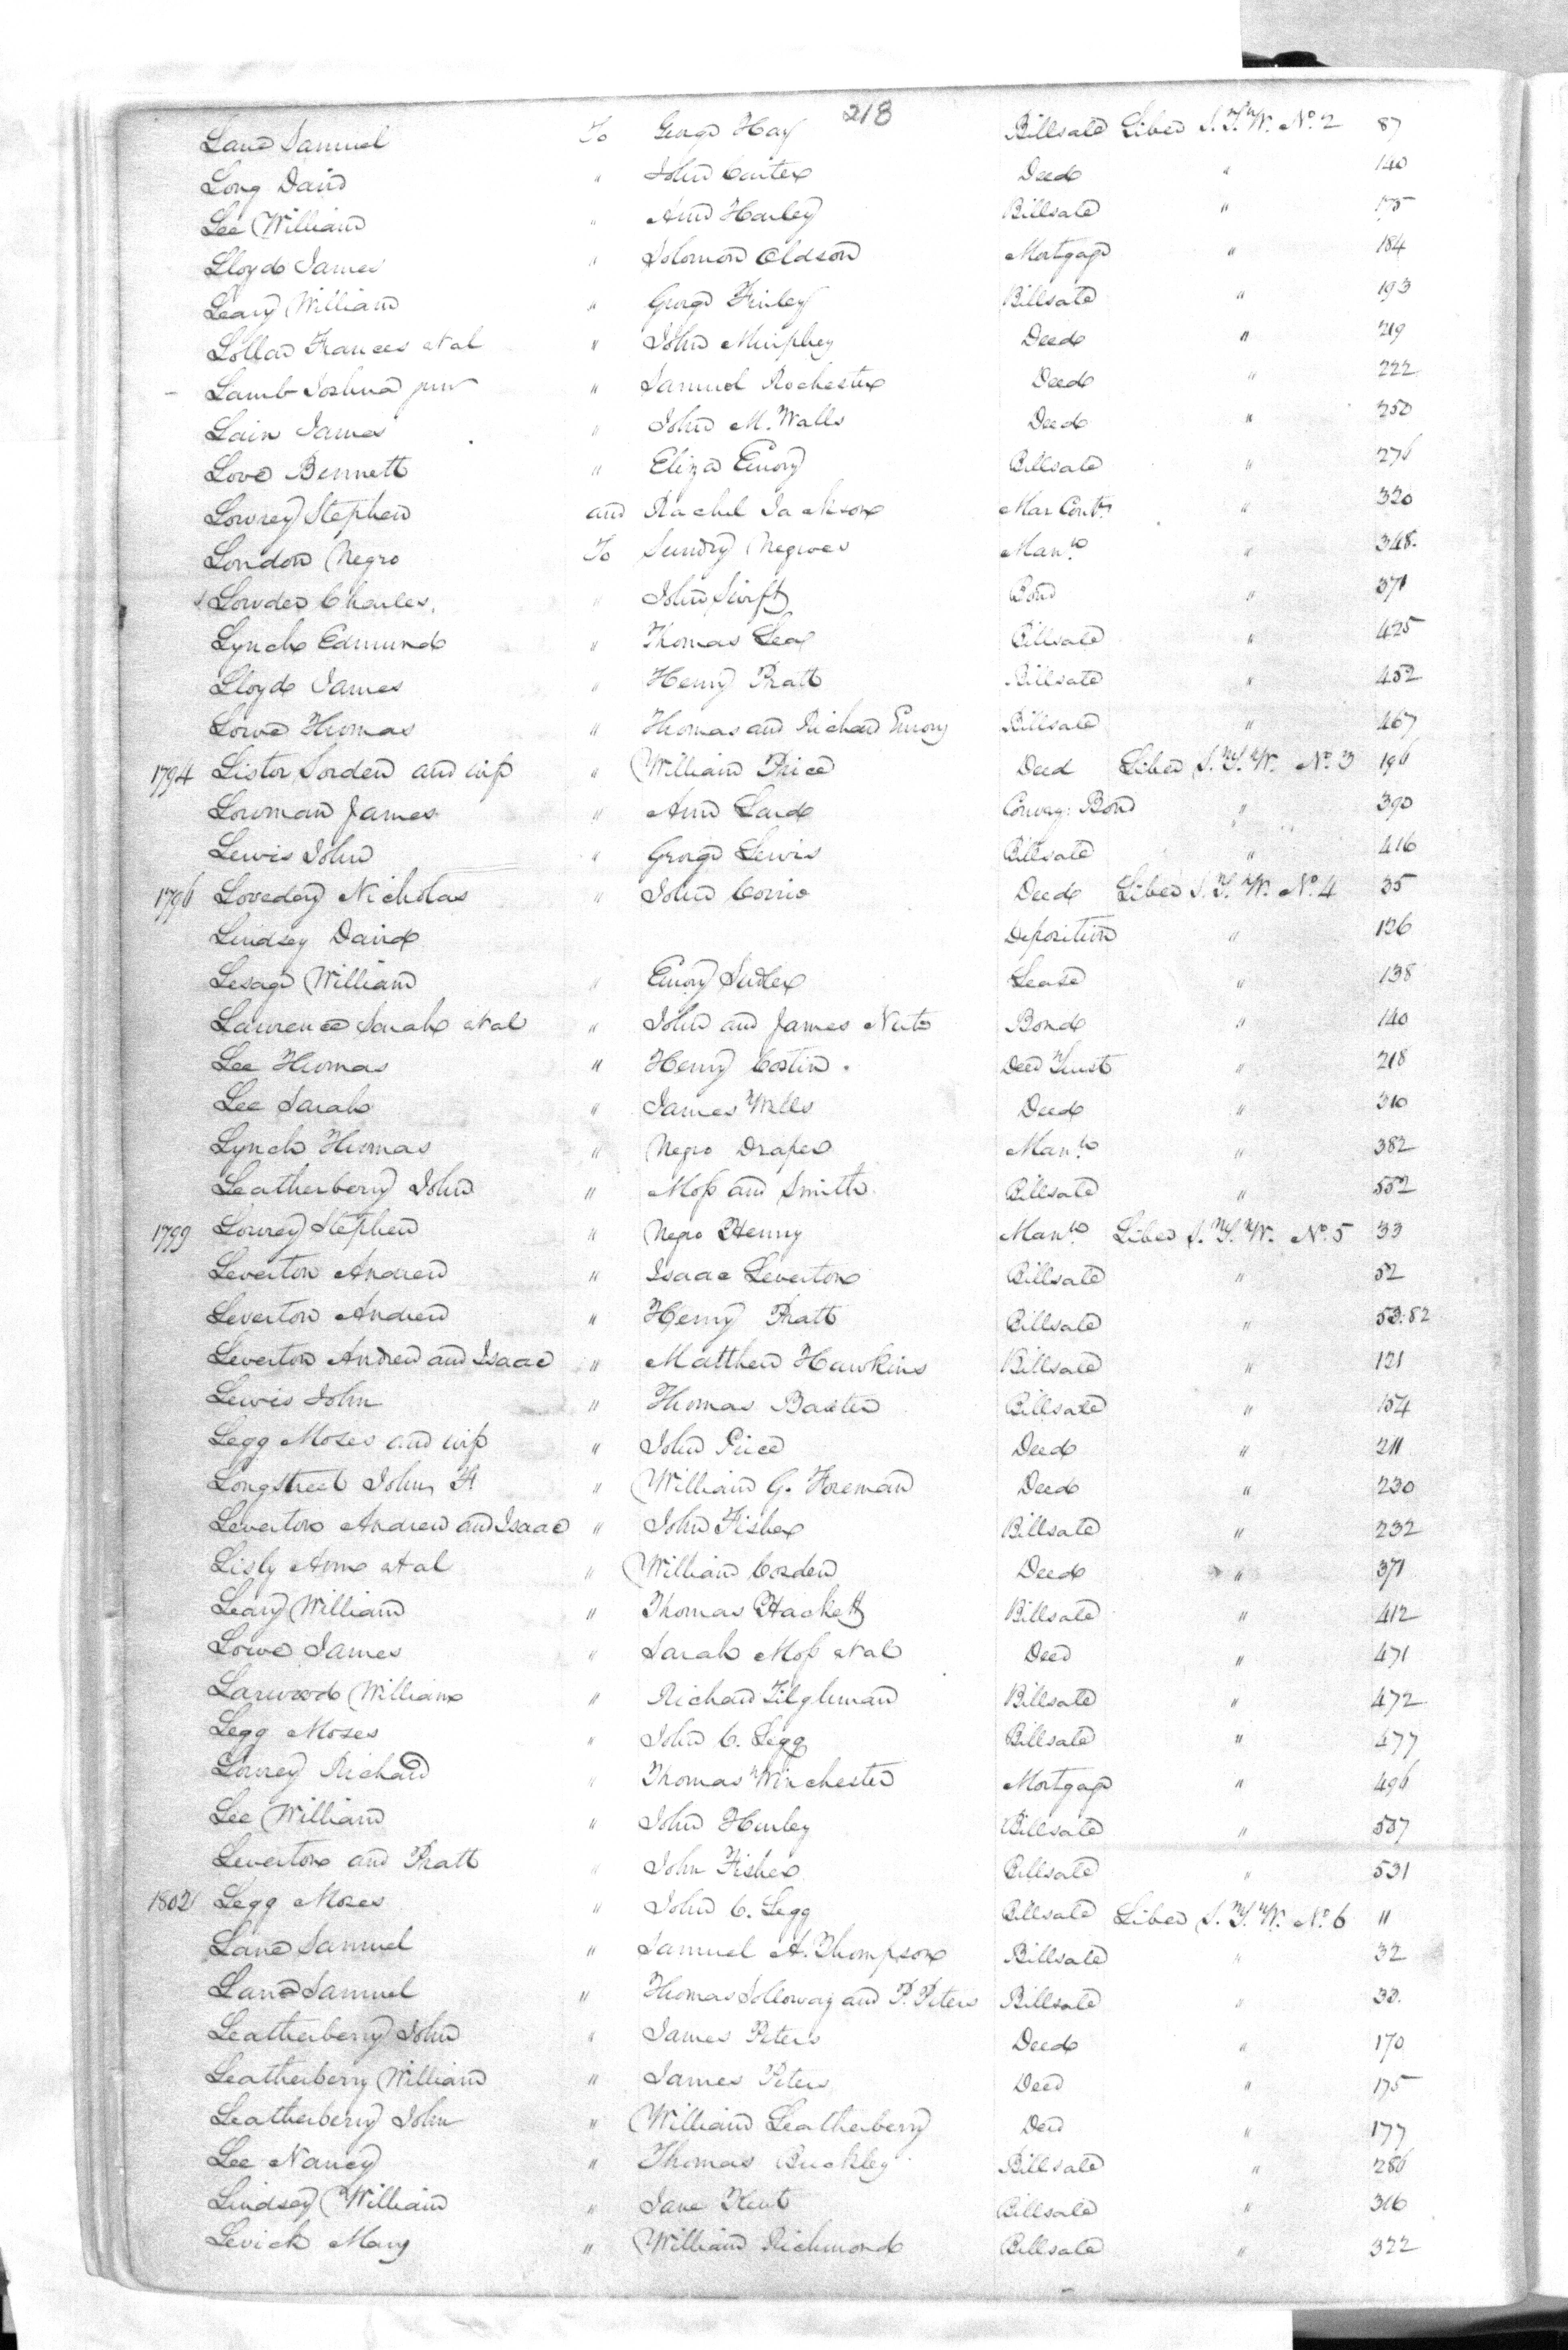 218
Lane Samuel To George Hay Billsale Liber S.T.W. No. 2 87
Long David " John Carter Deed " 140
Lee William " Ann Harley Billsale " 175
Lloyd James " Solomon Oldson Mortgage " 184
Leary William " George Finley Billsale " 193
Lollar Frances et al " John Murphey Deed " 219
Lamb Joshua junr " Samuel Rochester Deed " 222
Lain James " John M. Walls Deed " 250
Love Bennett " Eliza Emory Billsale " 276
Lowrey Stephen and Rachel Jackson Mar Contr " 320
London Negro To Sundry Negroes Man.n " 348
Lowder Charles " John Swift Bond " 371
Lynch Edmund " Thomas Lea Billsale " 425
Lloyd James " Henry Pratt Billsale " 452
Lowe Thomas " Thomas and Richard Emory Billsale " 467
1794 Lister Jorden and wife " William Price Deed Liber S.T.W. No. 3 196
Lowman James " Ann Lard Convey: Bond " 390
Lewis John " George Lewis Billsale " 416
1796 Loveday Nicholas " John Corrie Deed Liber S.T.W. No. 4 35
Lindsey David Deposition " 126
Lesage William " Emory Sudler Lease " 138
Lawrence Sarah et al " John and James Nuts Bond " 140
Lee Thomas " Henry Costin Deed Trust " 218
Lee Sarah " James Wells Deed " 310
Lynch Thomas " Negro Draper Man.n " 382
Leatherberry John " Moss and Smith Billsale " 552
1799 Lowrey Stephen " Negro Henny Man.n Liber S.T.W. No. 5 33
Leverton Andrew " Isaac Leverton Billsale " 52
Leverton Andrew " Henry Pratt Billsale " 53:82
Leverton Andrew and Isaac " Matthew Hawkins Billsale " 121
Lewis John " Thomas Baxter Billsale " 154
Legg Moses and wife " John Price Deed " 211
Longstreet John H " William G. Foreman Deed " 230
Leverton Andrew and Isaac " John Fisher Billsale " 232
Lisly Ann et al " William Corden Deed " 371
Leary William " Thomas Hackett Billsale " 412
Lowe James " Sarah Moss et al Deed " 471
Larwood William " Richard Tilghman Billsale " 472
Legg Moses " John C. Legg Billsale " 477
Lowrey Richard " Thomas Winchester Mortgage " 496
Lee William " John Hurley Billsale " 537
Leverton and Pratt " John Fisher Billsale " 531
1802 Legg Moses " John C. Legg Billsale Liber S.T.W. No. 6 11
Lane Samuel " Samuel A. Thompson Billsale " 32
Lane Samuel " Thomas Solloway and P. Peters Billsale " 32
Leatherberry John " James Peters Deed " 170
Leatherberry William " James Peters Deed " 175
Leatherberry John " William Leatherberry Deed " 177
Lee Nancy " Thomas Buckley Billsale " 286
Lindsey William " Jane Kent Billsale " 316
Levick Mary " William Richmond Billsale " 322